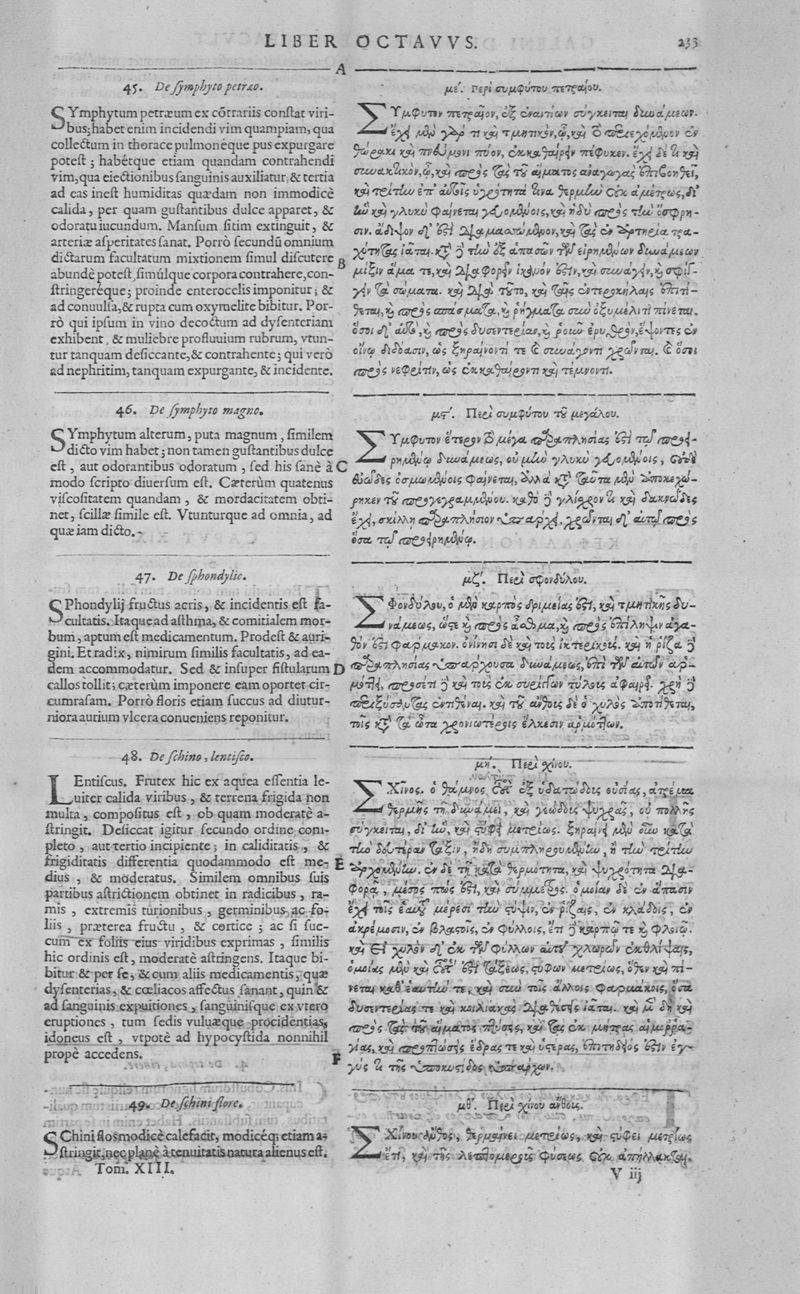 LIBER OCTAVVS. 233
A
45. De symphyto petræo.
SYmphytum petræum ex cõtrariis constat viri-
bus; habet enim incidendi vim quampiam, qua
collectum in thorace pulmonéque pus expurgare
potest; habétque etiam quandam contrahendi
vim, qua eiectionibus sanguinis auxiliatur, & tertia
ad eas inest humiditas quædam non immodicè
calida, per quam gustantibus dulce apparet, &
odoratu iucundum. Mansum sitim extinguit, &
arteriæ asperitates sanat. Porrò secundũ omnium
dictarum facultatum mixtionem simul discutere
B
abundè potest, simúlque corpora contrahere, con-
stringeréque; proinde enterocelis imponitur; &
ad conuulsa, & rupta cum oxymelite bibitur. Por-
rò qui ipsum in vino decoctum ad dysenteriam
exhibent, & muliebre profluuium rubrum, vtun-
tur tanquam desiccante, & contrahente; qui verò
ad nephritim, tanquam expurgante, & incidente.
46. De symphyto magno.
SYmphytum alterum, puta magnum, similem
dicto vim habet; non tamen gustantibus dulce
est, aut odorantibus odoratum, sed his sanè à
C
modo scripto diuersum est. Cæterùm quatenus
viscositatem quandam, & mordacitatem obti-
net, scillæ simile est. Vtunturque ad omnia, ad
quæ iam dicto.
47. De sphondylio.
SPhondylij fructus acris, & incidentis est fa-
cultatis. Itaque ad asthma, & comitialem mor-
bum, aptum est medicamentum. Prodest & auri-
gini. Et radix, nimirum similis facultatis, ad ea-
dem accommodatur. Sed & insuper fistularum
D
callos tollit; cæterùm imponere eam oportet cir-
cumrasam. Porrò floris etiam succus ad diutur-
niora aurium vlcera conueniens reponitur.
48. De schino, lentisco.
LEntiscus. Frutex hic ex aquea essentia le-
uiter calida viribus, & terrena frigida non
multa, compositus est, ob quam moderatè a-
stringit. Desiccat igitur secundo ordine com-
pleto, aut tertio incipiente; in caliditatis, &
E
frigiditatis differentia quodammodo est me-
dius, & moderatus. Similem omnibus suis
partibus astrictionem obtinet in radicibus, ra-
mis, extremis turionibus, germinibus ac fo-
liis, præterea fructu, & cortice; ac si suc-
cum ex foliis eius viridibus exprimas, similis
hic ordinis est, moderatè astringens. Itaque bi-
bitur & per se, & cum aliis medicamentis, quæ
dysenterias, & cœliacos affectus sanant, quin &
ad sanguinis expuitiones, sanguinisque ex vtero
eruptiones, tum sedis vuluæque procidentias,
idoneus est, vtpotè ad hypocystida nonnihil
propè accedens.
F
49. De schini flore.
SChini flos modicè calefacit, modicéq; etiam a-
stringit, nec planè à tenuitatis natura alienus est.
Tom. XIII.
με΄. Περὶ συμφύτου πετραίου.
ΣΥμφυτον πετραῖον, ἐξ ἐναντίων σύγκειται δυνάμεων.
ἔχει μὲν γάρ τι καὶ τμητικὸν, ᾧ, καὶ τὸ περιεχόμενον ἐν
θώρακι καὶ πνεύμονι πύον, ἐκκαθαίρειν πέφυκεν. ἔχει δέ τι καὶ
συνακτικὸν, ᾧ, καὶ πρὸς τὰς τοῦ αἵματος ἀναγωγὰς ἐπιβοηθεῖ,
καὶ τρίτην ἐπ᾽ αὐταῖς ὑγρότητά τινα θερμὴν οὐκ ἀμέτρως, δι᾽
ἣν καὶ γλυκὺ φαίνεται γευομένοις, καὶ ἡδὺ πρὸς τὴν ὄσφρη-
σιν. ἄδιψον δ᾽ ἐστὶ διαμασώμενον, καὶ τὰς ἐν ἀρτηρίᾳ τρα-
χύτητας ἰᾶται. κατὰ δὲ τὴν ἐξ ἁπασῶν τῶν εἰρημένων δυνάμεων
μίξιν ἅμα τε, καὶ διαφορεῖν ἱκανόν ἐστιν, καὶ συνάγειν, καὶ σφίγ-
γειν τὰ σώματα. καὶ διὰ τοῦτο, καὶ ταῖς ἐντεροκήλαις ἐπιτί-
θεται, καὶ πρὸς σπάσματα, καὶ ῥήγματα σὺν ὀξυμέλιτι πίνεται.
ὅσοι δ᾽ αὐτὸ, καὶ πρὸς δυσεντερίαν, καὶ ῥοῦν ἐρυθρὸν, ἕψοντες ἐν
οἴνῳ διδόασιν, ὡς ξηραίνοντί τε καὶ συνάγοντι χρῶνται. καὶ ὅσοι
πρὸς νεφρῖτιν, ὡς ἐκκαθαίροντι καὶ τέμνοντι.
μϛ΄. Περὶ συμφύτου τοῦ μεγάλου.
ΣΥμφυτον ἕτερον τὸ μέγα παραπλησίας ἐστὶ τῷ προει-
ρημένῳ δυνάμεως, οὐ μὴν γλυκὺ γευομένοις, οὐδὲ
εὐῶδες ὀσμωμένοις φαίνεται, ἀλλὰ κατὰ ταῦτα μὲν ἀποκεχώ-
ρηκεν τοῦ προγεγραμμένου. καθὸ δὲ γλίσχρόν τι καὶ δακνῶδες
ἔχει, σκίλλῃ παραπλήσιον ὑπάρχει, χρῶνται δ᾽ αὐτῷ πρὸς
ὅσα τῷ προειρημένῳ.
μζ΄. Περὶ σφονδύλου.
ΣΦονδύλου, ὁ μὲν καρπὸς δριμείας ἐστὶ, καὶ τμητικῆς δυ-
νάμεως, ὥστε καὶ πρὸς ἆσθμα, καὶ πρὸς ἐπίληψιν ἀγα-
θόν ἐστι φάρμακον. ὀνίνησι δὲ καὶ τοὺς ἰκτερικούς. καὶ ἡ ῥίζα δὲ
παραπλησίας ὑπάρχουσα δυνάμεως, ἐπὶ τῶν αὐτῶν ἁρ-
μόττει, προσέτι δὲ καὶ τοὺς ἐκ συρίγγων τύλους ἀφαιρεῖ. χρὴ δὲ
περιξύσαντας ἐντιθέναι. καὶ τοῦ ἄνθους δὲ ὁ χυλὸς ἀποτίθεται,
τοῖς κατὰ τὰ ὦτα χρονιωτέροις ἕλκεσιν ἁρμόττων.
μη΄. Περὶ χίνου.
ΣΧῖνος. ὁ θάμνος οὗτος ἐξ ὑδατώδους οὐσίας, ἀτρέμα
θερμῆς τῇ δυνάμει, καὶ γεώδους ψυχρᾶς, οὐ πολλῆς
σύγκειται, δι᾽ ἣν, καὶ στύφει μετρίως. ξηραίνει μὲν οὖν κατὰ
τὴν δευτέραν τάξιν, ἤδη συμπληρουμένην, ἢ τὴν τρίτην
ἀρχομένην. ἐν δὲ τῇ κατὰ θερμότητα, καὶ ψυχρότητα δια-
φορᾷ, μέσης πώς ἐστι, καὶ σύμμετρος. ὁμοίαν δὲ ἐν ἅπασιν
ἔχει τοῖς ἑαυτοῦ μέρεσι τὴν στύψιν, ἐν ῥίζαις, ἐν κλάδοις, ἐν
ἀκρέμοσιν, ἐν βλαστοῖς, ἐν φύλλοις, ἔτι δὲ καρπῷ τε καὶ φλοιῷ.
καὶ εἰ χυλὸν δ᾽ ἐκ τῶν φύλλων αὐτοῦ χλωρῶν ἐκθλίψαις,
ὁμοίας μὲν καὶ οὗτός ἐστι τάξεως, στύφων μετρίως, ὅθεν καὶ πί-
νεται καθ᾽ ἑαυτόν τε, καὶ σὺν τοῖς ἄλλοις φαρμάκοις, ὅσα
δυσεντερίας τε καὶ κοιλιακὰς διαθέσεις ἰᾶται. καὶ μὲν δὴ καὶ
πρὸς τὰς τοῦ αἵματος πτύσεις, καὶ τὰς ἐκ μήτρας αἱμορρα-
γίας, καὶ προπτώσεις ἕδρας τε καὶ ὑστέρας, ἐπιτήδειός ἐστιν ἐγ-
γύς τι τῆς ὑποκυστίδος ὑπάρχων.
μθ΄. Περὶ χίνου ἄνθους.
ΣΧίνου ἄνθος, θερμαίνει μετρίως, καὶ στύφει μετρίως
ἔτι, καὶ τῆς λεπτομεροῦς φύσεως οὐκ ἀπήλλακται.
V iij